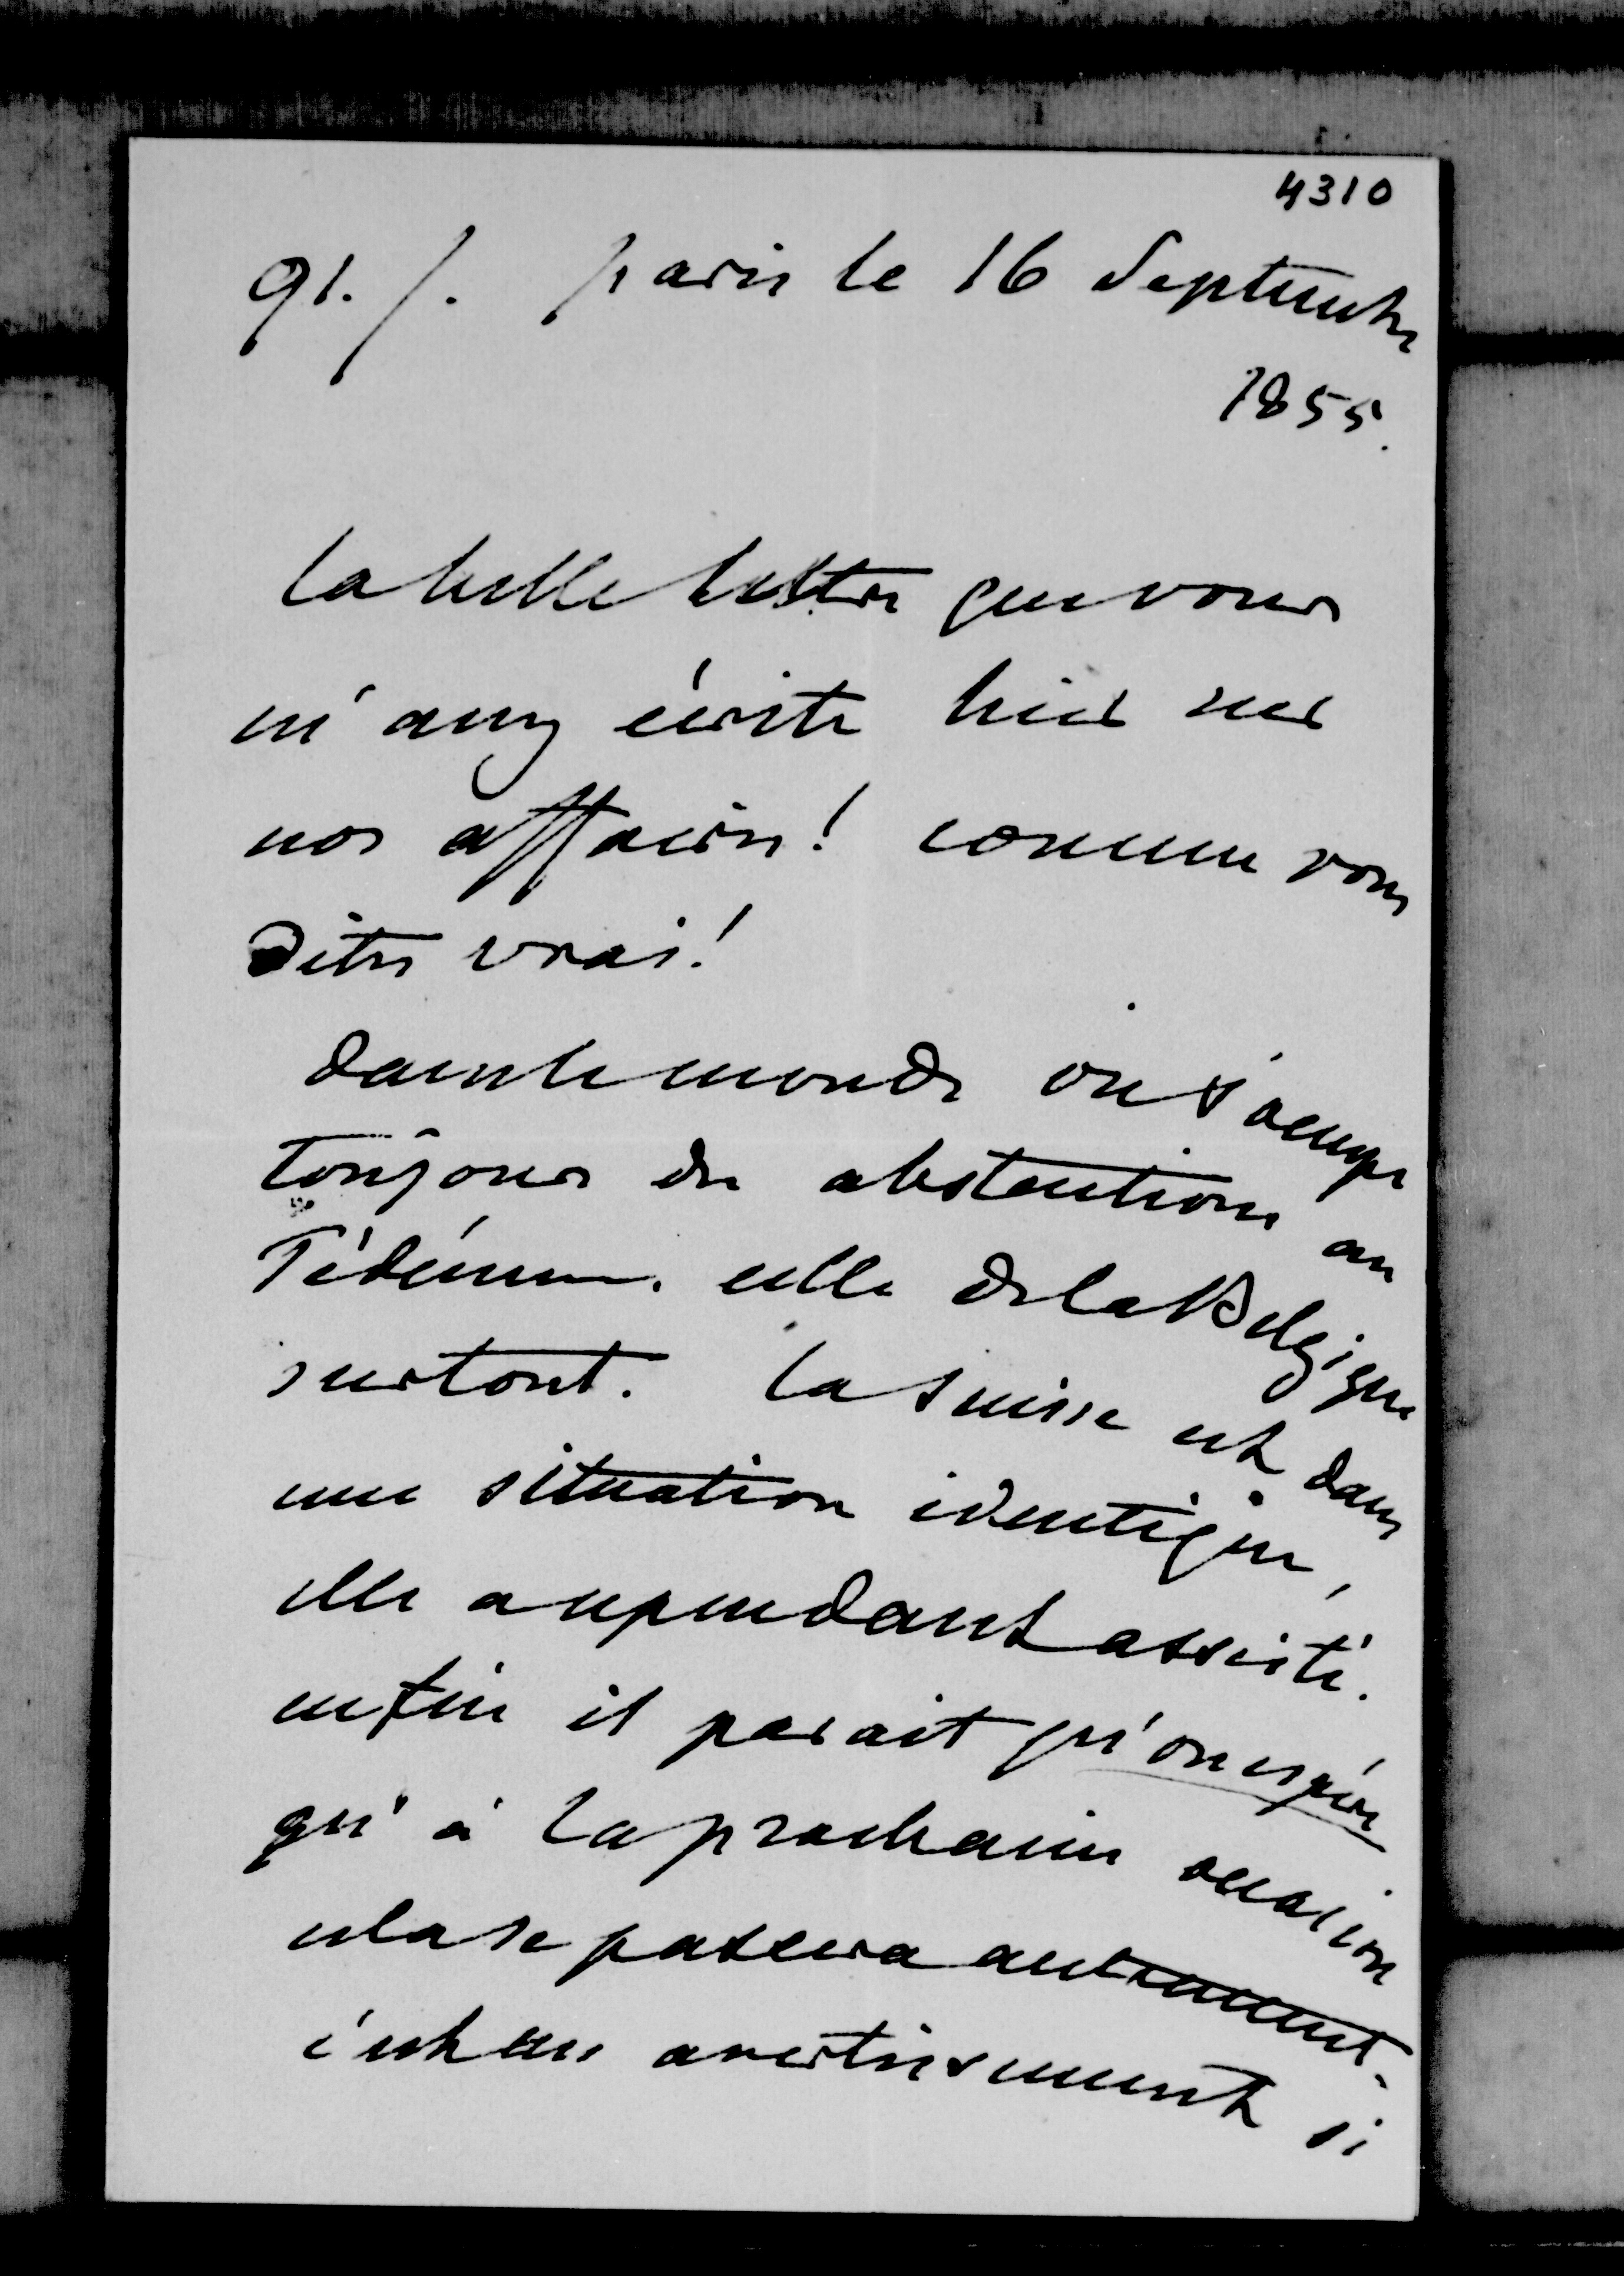 4310
91. /. paris le 16 Septembre
1855.
la belle lettre que vous
m'avez écrite hier sur
nos affaires! comme vous
dites vrai!
dans le monde on s'occupe
toujours des abstentions au
Tédéum. celle de la Belgique
surtout. la Suisse est dans
une situation identique,
elle a cependant assisté.
enfin il parait qu'on espère
qu'à la prochaine occasion
cela se passera autrement.
c'est un avertissement si